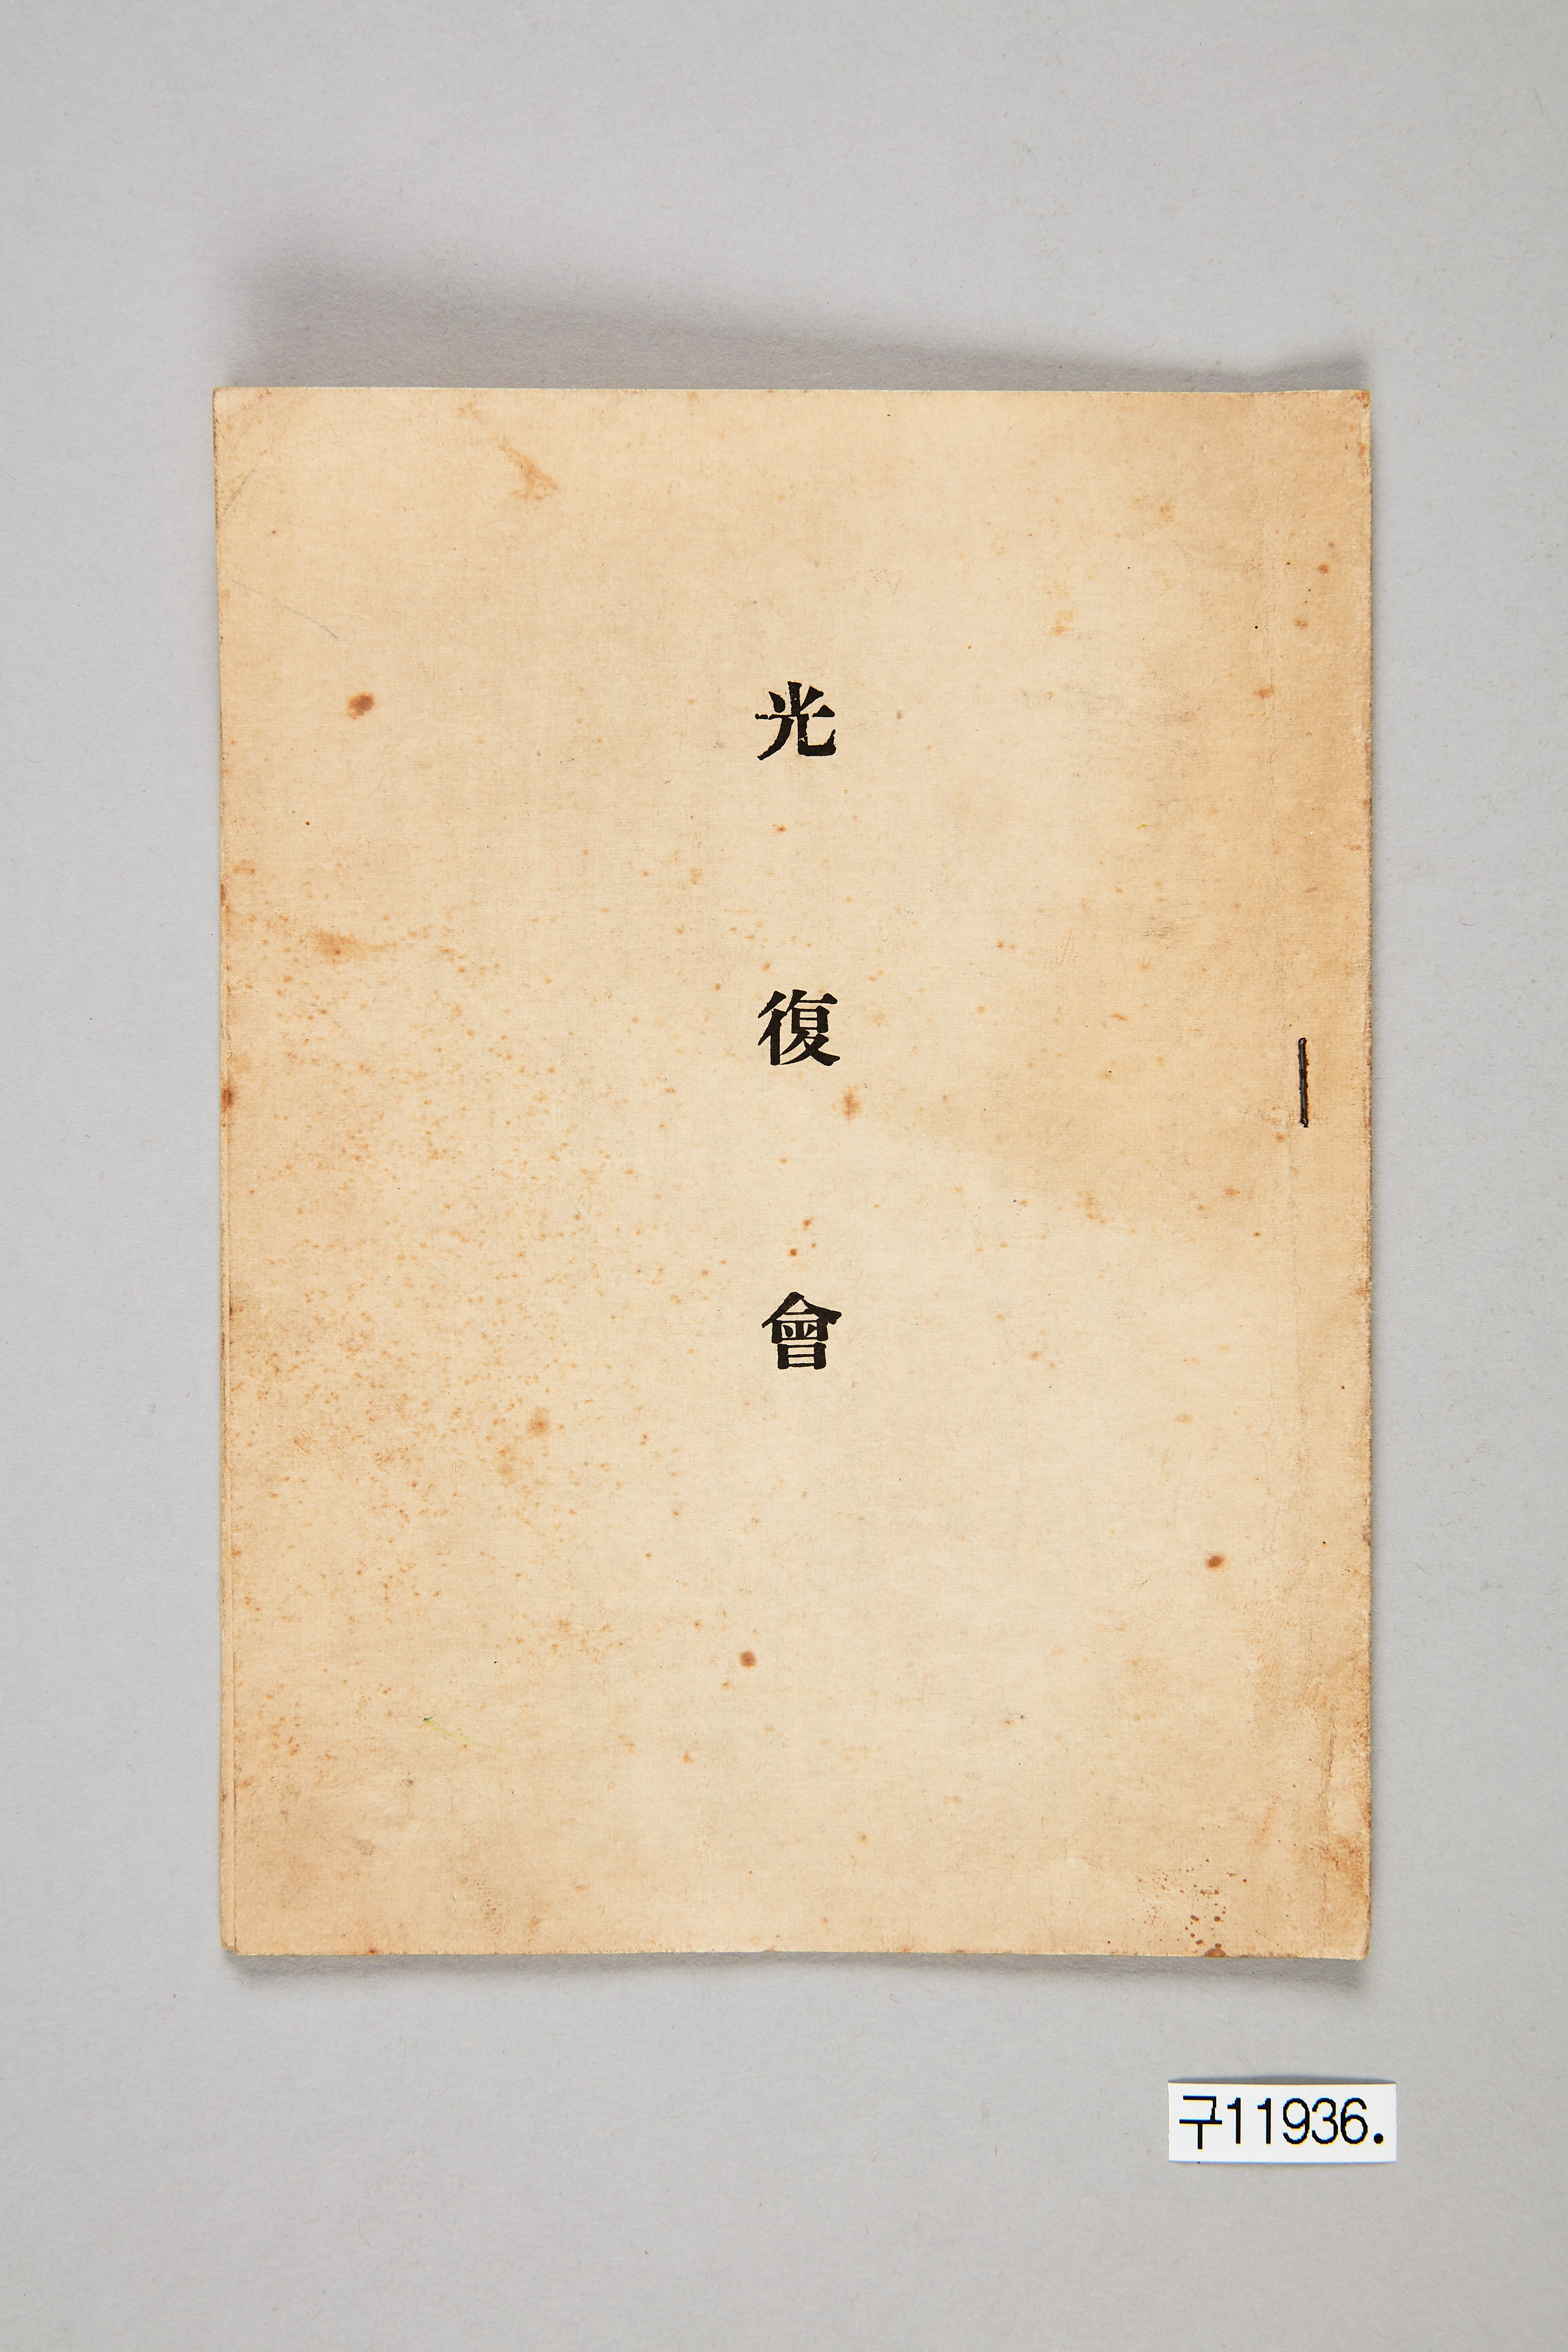 光復會
구11936.